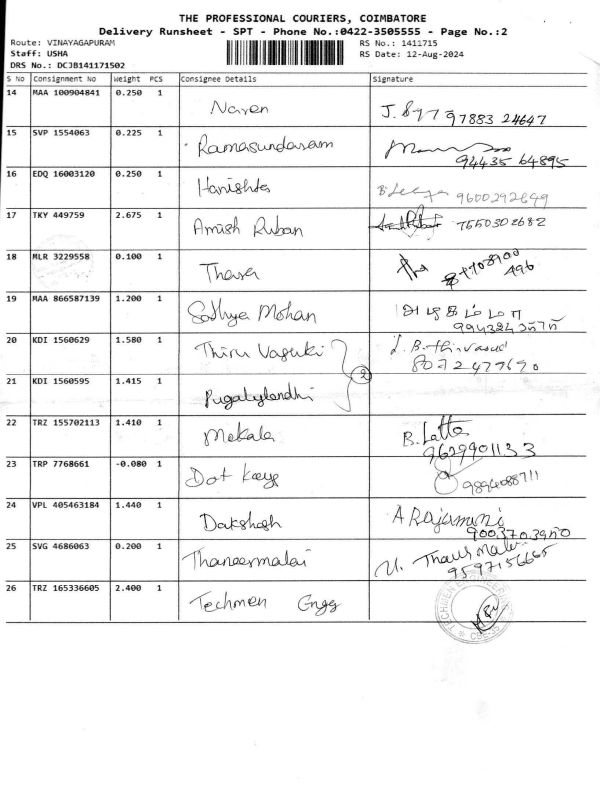 THE PROFESSIONAL COURIERS, COIMBATORE
Delivery Runsheet - SPT - Phone No.:0422-3505555 - Page No.:2
Route: VINAYAGAPURAM RS No.: 1411715
Staff: USHA RS Date: 12-Aug-2024
DRS No.: DCJB141171502
S No Consignment No Weight PCS Consignee Details Signature
14 MAA 100904841 0.250 1
Naren 97883 24647
15 SVP 1554063 0.225 1
Ramasundaram
94435 64895
16 EDQ 16003120 0.250 1
Harishta 9600292649
17 TKY 449759 2.675 1
Amish Ruban 7550302682
18 MLR 3229558 0.100 1
Thara
496
19 MAA 866587139 1.200 1
Sathya Mohan
20 KDI 1560629 1.580 1
Thiru Vasuki
2
21 KDI 1560595 1.415 1
Pugalylendhi
22 TRZ 155702113 1.410 1
Mekala B. Latta
9629901133
23 TRP 7768661 -0.080 1
Dot Kays 9894088711
24 VPL 405463184 1.440 1
Dakshesh A Rajamani
25 SVG 4686063 0.200 1
Thaneermalai
9597156665
26 TRZ 165336605 2.400 1
Techmen Engg
TECHMEN ENGINEERING
* CBE-35 *